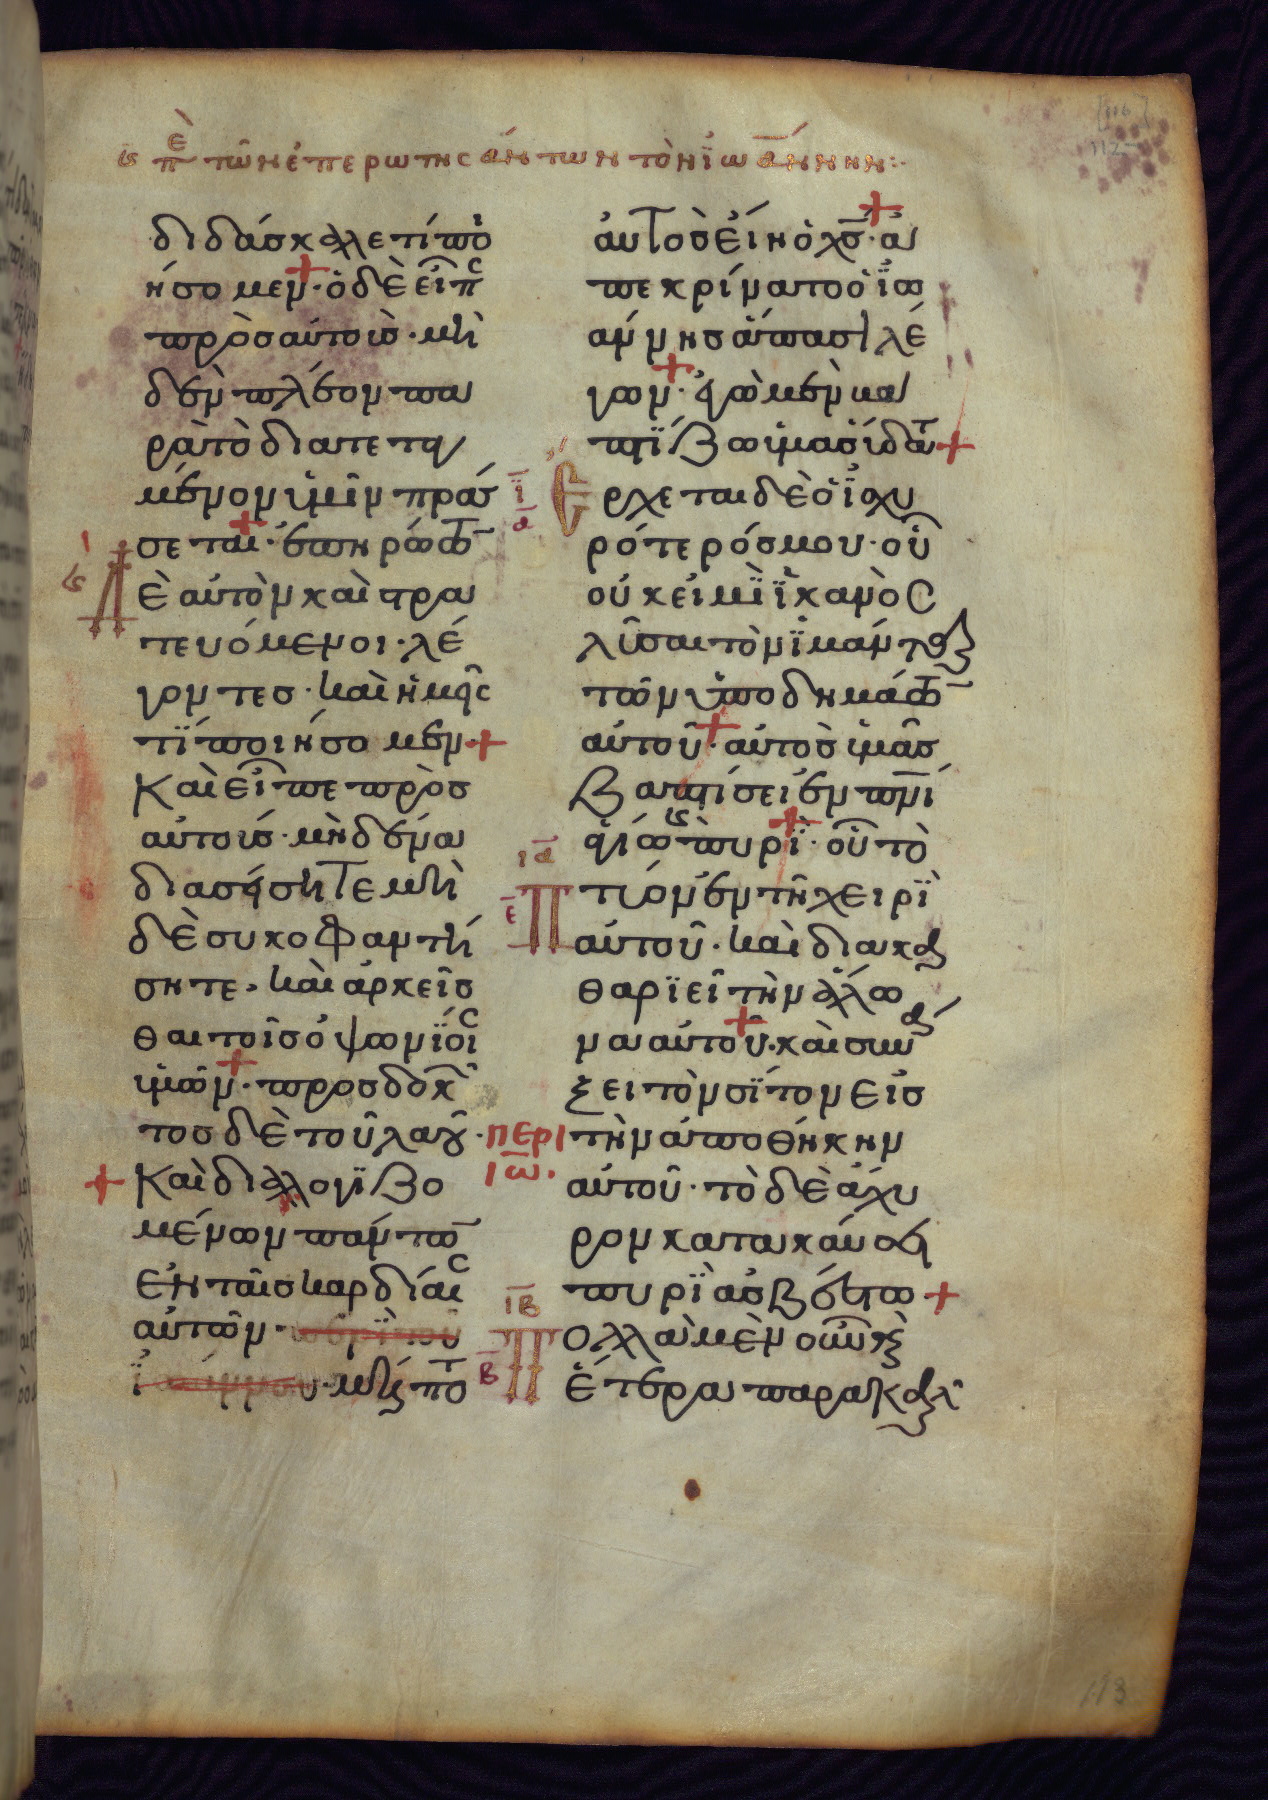 ϛ πε τῶν ἐπερωτησάντων τὸν ϊωάννην:
διδάσκαλε τί ποι
ήσομεν· ὁ δὲ εἶπ
πρὸς αὐτούς· μη
δὲν πλέον πα
ρὰ τὸ διατεταγ
μένον ὑμῖν πράσ
σεται· ἐπηρώτ
Δὲ αὐτὸν καὶ στρα
τευόμενοι· λέ
γοντες· καὶ ἡμεῖς
τί ποιήσομεν
Καὶ εἶπε πρὸς
αὐτούς· μηδένα
διασείσητε μη
δὲ συκοφαντή
σητε· καὶ ἀρκεῖσ
θαι τοῖς ὀψωνίοις
ὑμῶν· προσδοκ
τος δὲ τοῦ λαοῦ·
Καὶ διαλογϊζο
μένων πάντω
ἐν ταῖς καρδίαις
αὐτῶν· περὶ τοῦ
ϊωάννου· μήπο τ
αὐτὸς εἴη ὁ χς· ἀ
πεκρίνατο ὁ ϊω
άννης ἅπασι λέ
γων· ἐγὼ μὲν βα
πτίζω ὑμᾶς ὕδατ
ϊ
δ
Ερχεται δὲ ὁ ἰσχυ
ρότερός μου· οὗ
οὐκ εἰμὶ ϊκανὸς
λῦσαι τὸν ϊμάντα
τῶν ὑποδημάτ
αὐτοῦ· αὐτὸς ὑμᾶς
βαπτίσει ἐν πνϊ
ἁγίω ϛ πυρΐ· οὗ τὸ
ια
ε
Πτύον ἐν τῆ χειρΐ
αὐτοῦ· καὶ διακα
θαριεῖ τὴν ἅλω
να αὐτοῦ· καὶ συνά
ξει τὸν σῖτον εἰς
περι
ιω·
τὴν ἀποθήκην
αὐτοῦ· τὸ δὲ ἄχυ
ρον κατακαύσει
πυρΐ ἀσβέστω
ιβ
β
Πολλὰ μὲν οὖν καὶ
ἕτερα παρακαλ
113